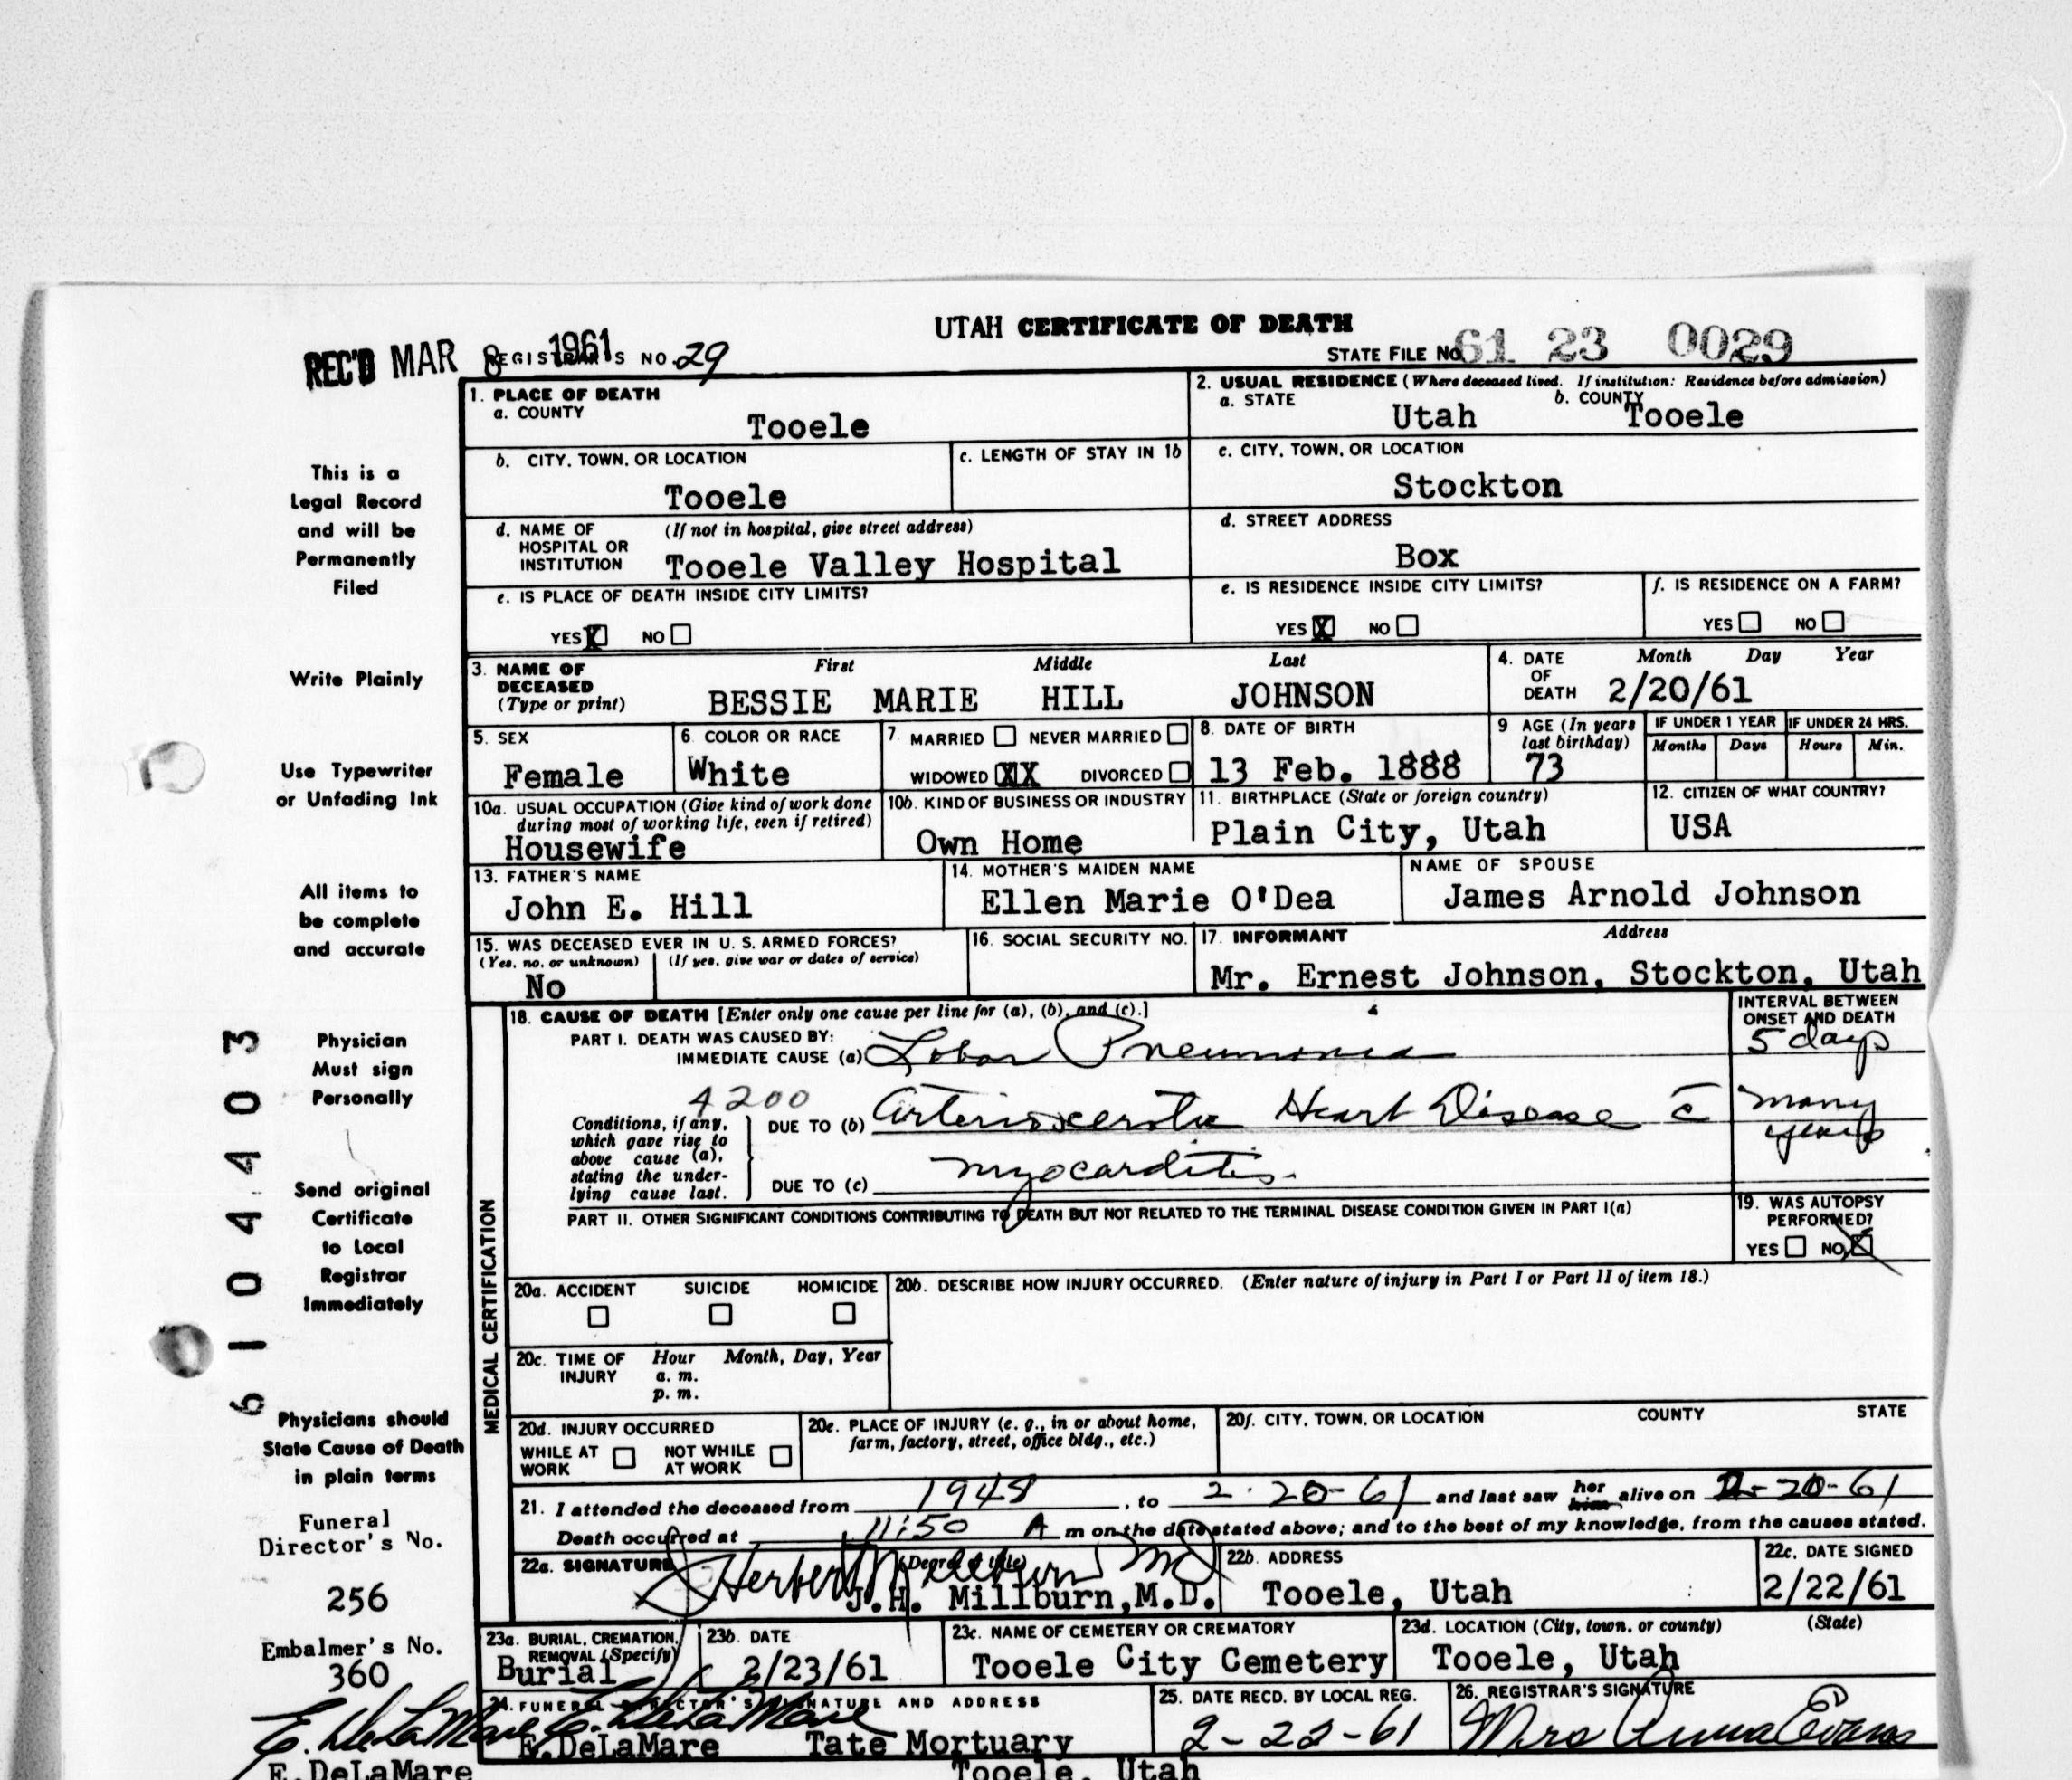 UTAH CERTIFICATE OF DEATH
REC'D MAR 8 1961 REGISTRAR'S NO. 29
STATE FILE NO. 61 23 0029
1. PLACE OF DEATH
a. COUNTY
Tooele
2. USUAL RESIDENCE (Where deceased lived. If institution: Residence before admission)
a. STATE Utah b. COUNTY Tooele
b. CITY, TOWN, OR LOCATION
Tooele
c. LENGTH OF STAY IN 1b
c. CITY, TOWN, OR LOCATION
Stockton
d. NAME OF HOSPITAL OR INSTITUTION (If not in hospital, give street address)
Tooele Valley Hospital
d. STREET ADDRESS
Box
e. IS PLACE OF DEATH INSIDE CITY LIMITS?
YES X NO
e. IS RESIDENCE INSIDE CITY LIMITS?
YES X NO
f. IS RESIDENCE ON A FARM?
YES NO
3. NAME OF DECEASED (Type or print) First Middle Last
BESSIE MARIE HILL JOHNSON
4. DATE OF DEATH Month Day Year
2/20/61
5. SEX
Female
6. COLOR OR RACE
White
7. MARRIED NEVER MARRIED
WIDOWED XX DIVORCED
8. DATE OF BIRTH
13 Feb. 1888
9 AGE (In years last birthday)
73
IF UNDER 1 YEAR
Months Days
IF UNDER 24 HRS.
Hours Min.
10a. USUAL OCCUPATION (Give kind of work done during most of working life, even if retired)
Housewife
10b. KIND OF BUSINESS OR INDUSTRY
Own Home
11. BIRTHPLACE (State or foreign country)
Plain City, Utah
12. CITIZEN OF WHAT COUNTRY?
USA
13. FATHER'S NAME
John E. Hill
14. MOTHER'S MAIDEN NAME
Ellen Marie O'Dea
NAME OF SPOUSE
James Arnold Johnson
15. WAS DECEASED EVER IN U. S. ARMED FORCES?
(Yes, no, or unknown) (If yes, give war or dates of service)
No
16. SOCIAL SECURITY NO.
17. INFORMANT Address
Mr. Ernest Johnson, Stockton, Utah
MEDICAL CERTIFICATION
18. CAUSE OF DEATH [Enter only one cause per line for (a), (b), and (c).]
INTERVAL BETWEEN ONSET AND DEATH
PART I. DEATH WAS CAUSED BY:
IMMEDIATE CAUSE (a) Lobar Pneumonia 5 days
4200
Conditions, if any, which gave rise to above cause (a), stating the underlying cause last.
DUE TO (b) Arteriosclerotic Heart Disease c̄ many years
DUE TO (c) myocarditis.
PART II. OTHER SIGNIFICANT CONDITIONS CONTRIBUTING TO DEATH BUT NOT RELATED TO THE TERMINAL DISEASE CONDITION GIVEN IN PART I(a)
19. WAS AUTOPSY PERFORMED?
YES NO X
20a. ACCIDENT SUICIDE HOMICIDE
20b. DESCRIBE HOW INJURY OCCURRED. (Enter nature of injury in Part I or Part II of item 18.)
20c. TIME OF INJURY Hour Month, Day, Year
a. m.
p. m.
20d. INJURY OCCURRED
WHILE AT WORK NOT WHILE AT WORK
20e. PLACE OF INJURY (e. g., in or about home, farm, factory, street, office bldg., etc.)
20f. CITY, TOWN, OR LOCATION COUNTY STATE
21. I attended the deceased from 1948, to 2-20-61 and last saw her him alive on 2-20-61
Death occurred at 11:50 A m on the date stated above; and to the best of my knowledge, from the causes stated.
22a. SIGNATURE (Degree or title)
Herbert Millburn MD
J.H. Millburn, M.D.
22b. ADDRESS
Tooele, Utah
22c. DATE SIGNED
2/22/61
23a. BURIAL, CREMATION, REMOVAL (Specify)
Burial
23b. DATE
2/23/61
23c. NAME OF CEMETERY OR CREMATORY
Tooele City Cemetery
23d. LOCATION (City, town, or county) (State)
Tooele, Utah
24. FUNERAL DIRECTOR'S SIGNATURE AND ADDRESS
E. DeLaMare
E.DeLaMare Tate Mortuary
Tooele, Utah
25. DATE RECD. BY LOCAL REG.
2-22-61
26. REGISTRAR'S SIGNATURE
Mrs Anna Evans
This is a
Legal Record
and will be
Permanently
Filed
Write Plainly
Use Typewriter
or Unfading Ink
All items to
be complete
and accurate
Physician
Must sign
Personally
Send original
Certificate
to Local
Registrar
Immediately
Physicians should
State Cause of Death
in plain terms
6104403
Funeral
Director's No.
256
Embalmer's No.
360
E. DeLaMare
E.DeLaMare